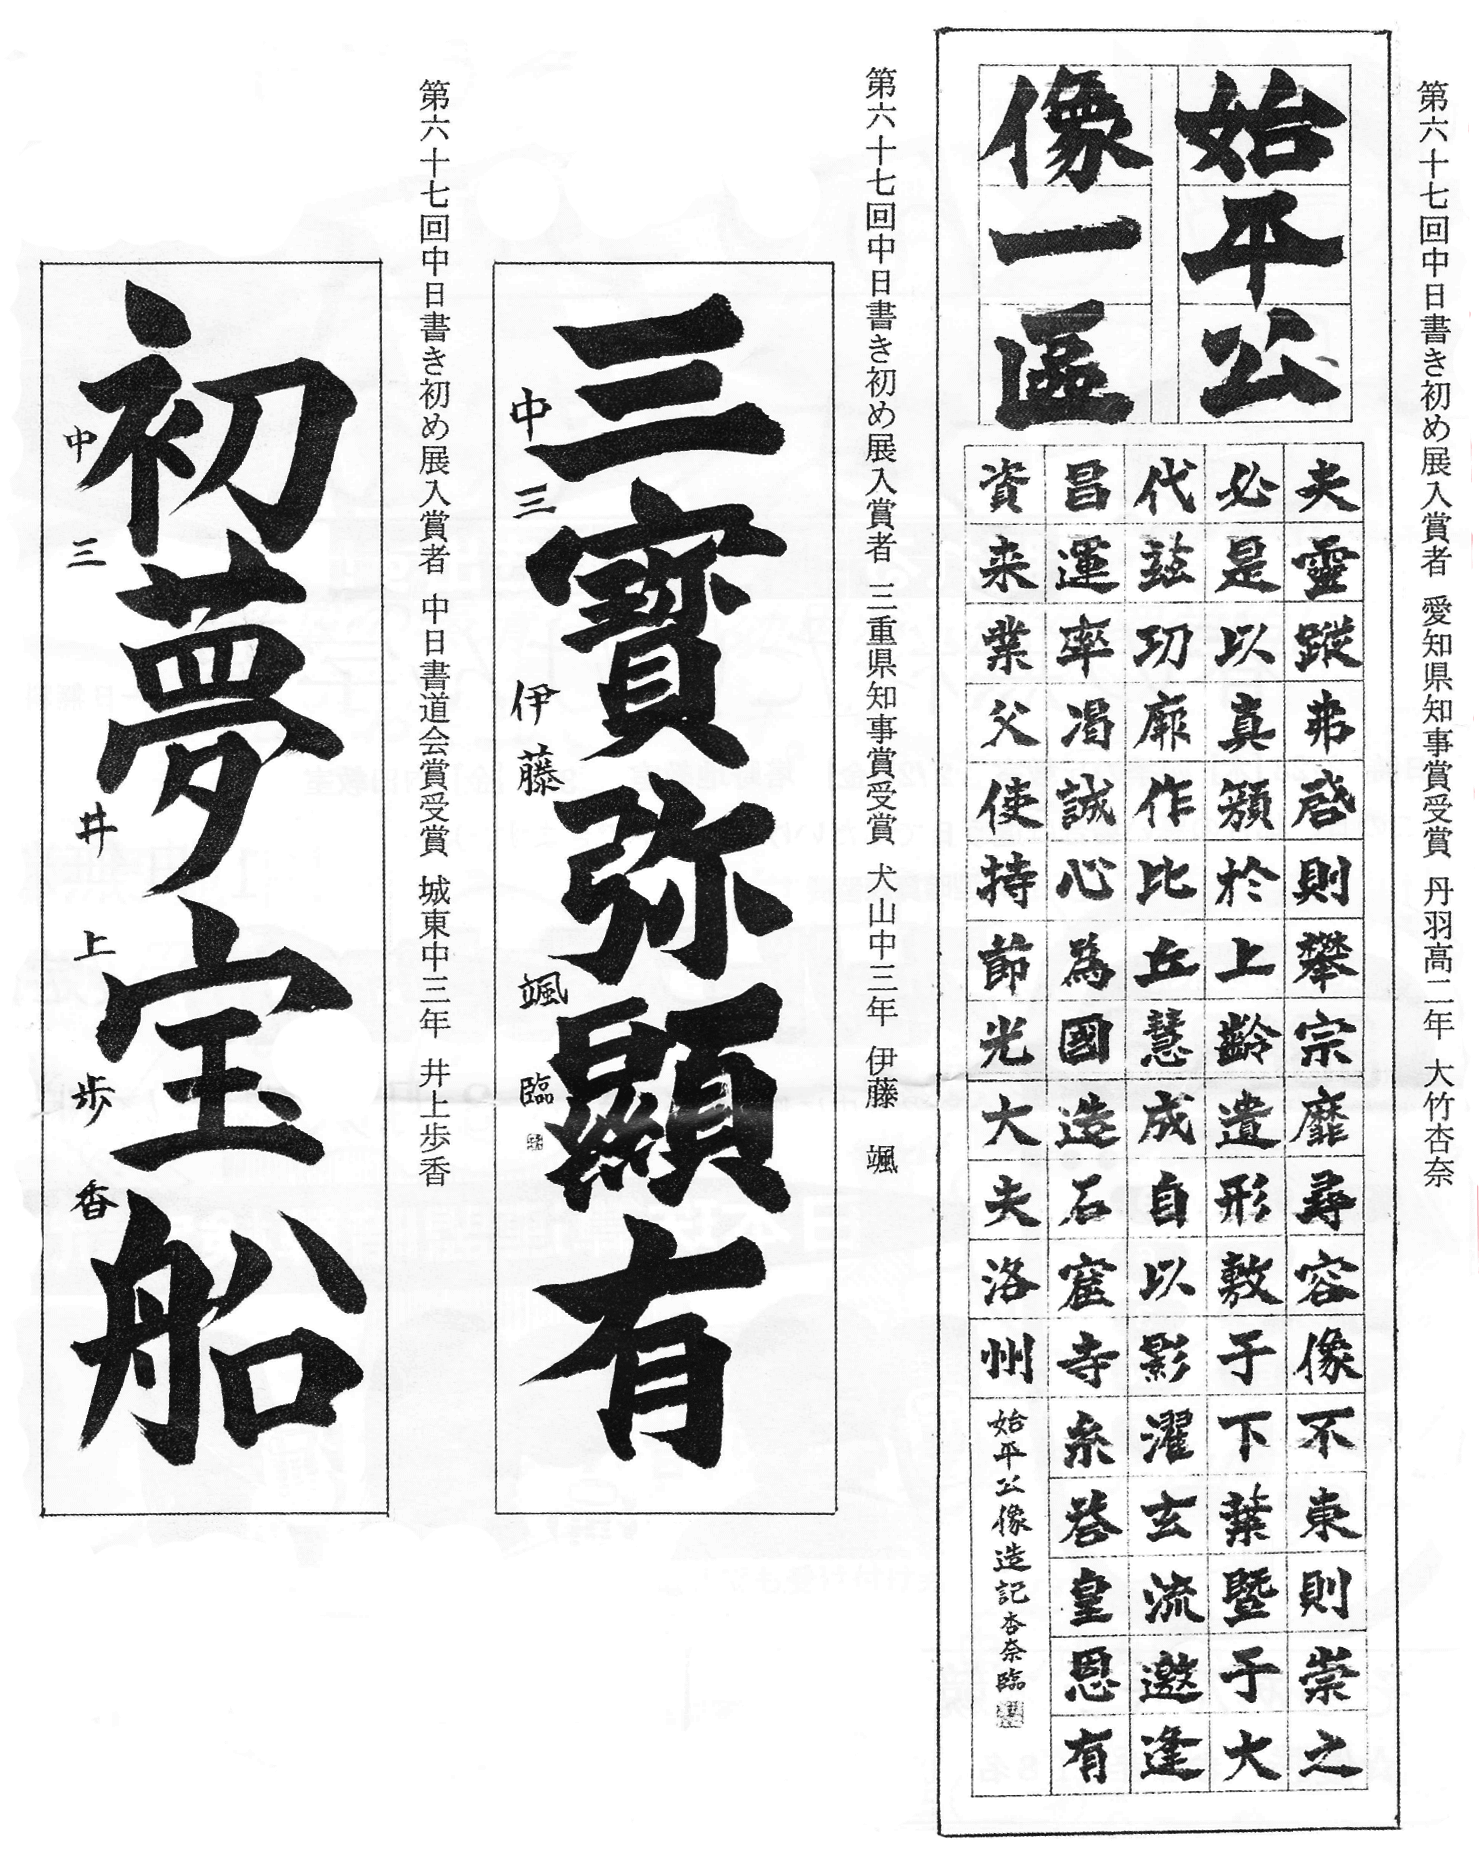 第六十七回中日書き初め展入賞者 愛知県知事賞受賞 丹羽高二年 大竹杏奈
始平公
像一區
夫靈蹤弗啓則攀宗靡尋容像不束則崇之
必是以真顏於上齡遺形敷于下葉暨于大
代茲功厞作比丘慧成自以影濯玄流邀逢
昌運率渴誠心為國造石窟寺糸荅皇恩有
資来業父使持節光大夫洛州
始平公像造記 杏奈臨
第六十七回中日書き初め展入賞者 三重県知事賞受賞 犬山中三年 伊藤 颯
三寶弥顯有
中三 伊藤颯臨
第六十七回中日書き初め展入賞者 中日書道会賞受賞 城東中三年 井上歩香
初夢宝船
中三 井上歩香